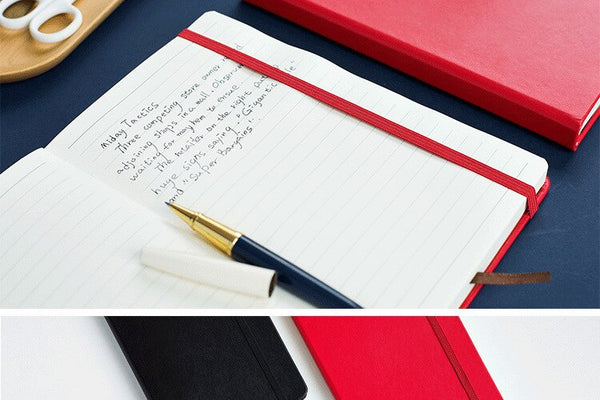 Midday Tactics
Three competing store owner
adjoining shops in a mall. Observe
waiting for mayhem to ensue
The retailer on the right put
huge signs saying "Gigantic
and "Super Bargins"..